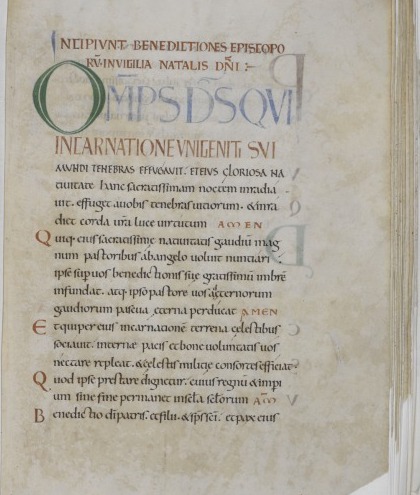 INCIPIVNT BENEDICTIONES EPISCOPO
RŪ. IN VIGILIA NATALIS DÑI:
OM̄PS D̄S QVI
INCARNATIONE VNIGENITI SVI
MVNDI TENEBRAS EFFVGAVIT. ET EIVS GLORIOSA NA
tiuitate hanc sacratissimam noctem inradia
uit. effuget auobis tenebras uitiorum. & inra
diet corda ur̄a luce uirtutum AMEN
Quiq; eius sacratissime natiuitatis gaudiū mag
num pastoribus abangelo uoluit nuntiari.
ipse sup uos benedictionis sue gratissimū imbrē
infundat. atq; ipso pastore uos aeternorum
gaudiorum pascua eterna perducat AMEN
Et qui per eius incarnationē terrena celestibus
sociauit. interne pacis et bone uoluntatis uos
nectare repleat. & celestis militie consortes efficiat.
Quod ipse prestare dignetur. cuius regnū & impi
um sine fine permanet in secla seclorum AM̄
Benedictio dī patris. et filii. & sp̄s sc̄i. et pax eius